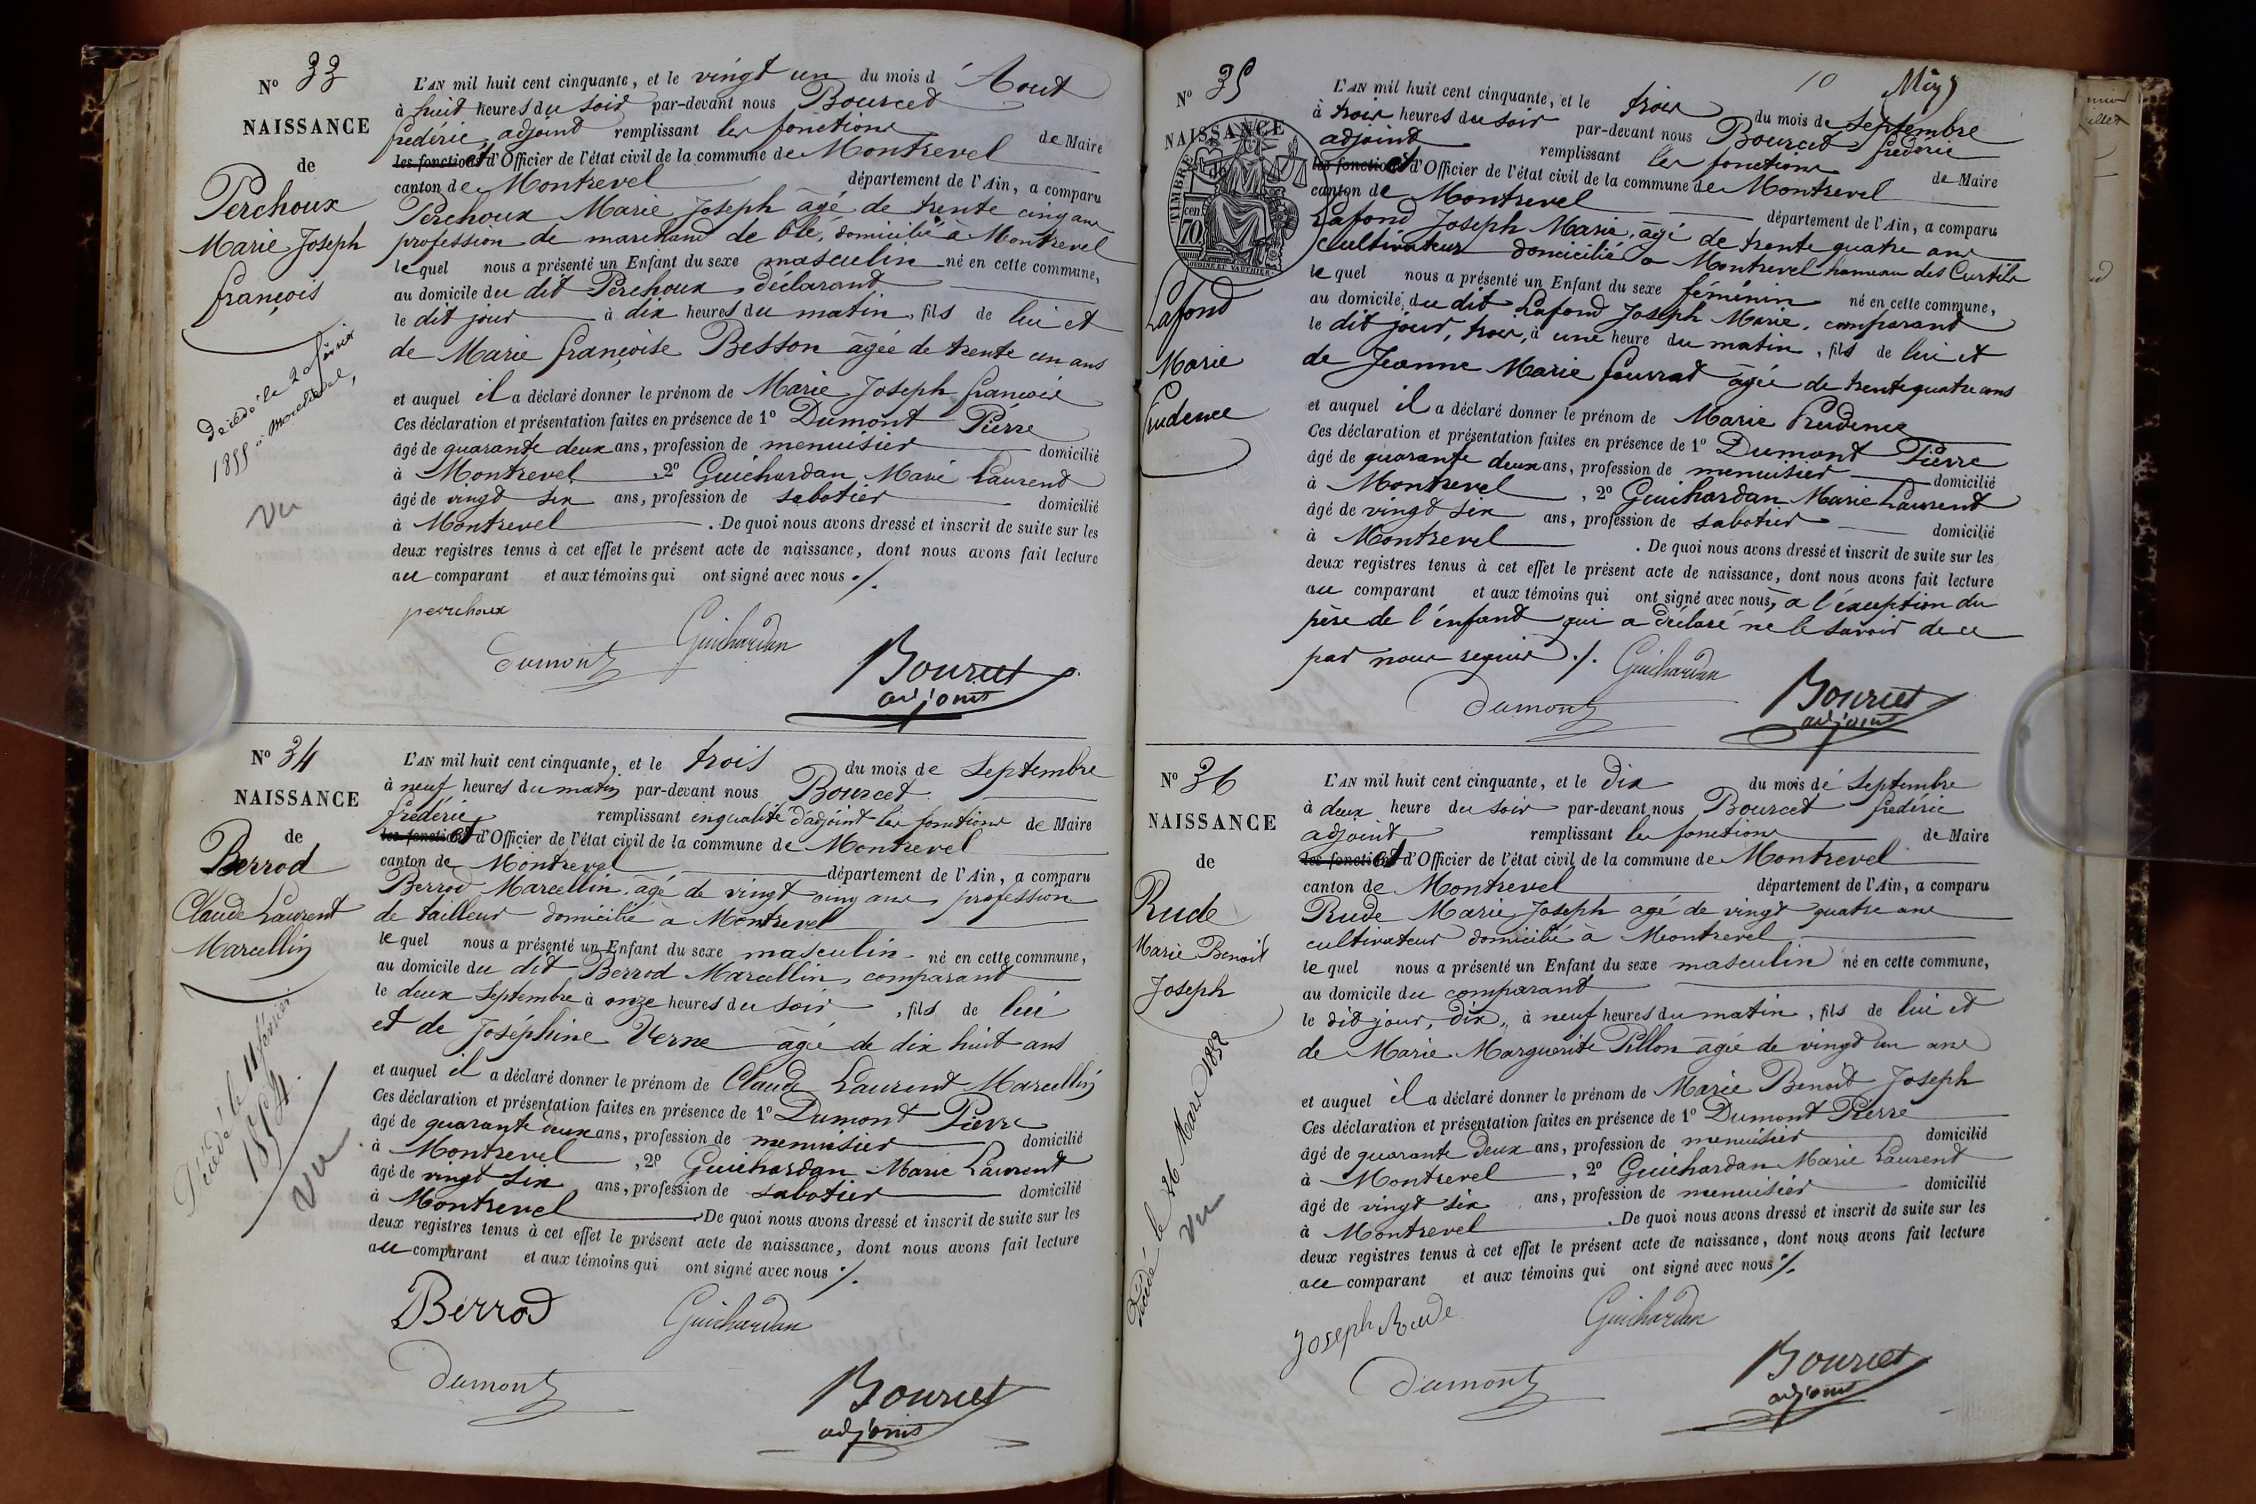 N° 33
NAISSANCE
de
Perchoux
Marie Joseph
françois
décédé le 20 février
1855 à Montrevel,
Vu
L'AN mil huit cent cinquante, et le vingt un du mois d'Aout
à huit heures du soir par-devant nous Bourcet
frédéric adjoint remplissant les fonctions de Maire
les fonctions et d'Officier de l'état civil de la commune de Montrevel
canton de Montrevel département de l'Ain, a comparu
Perchoux Marie Joseph âgé de trente cinq ans
profession de marchand de blé, domicilié à Montrevel
lequel nous a présenté un Enfant du sexe masculin né en cette commune,
au domicile du dit Perchoux, déclarant
le dit jour à dix heures du matin, fils de lui et
de Marie françoise Besson âgée de trente un ans
et auquel il a déclaré donner le prénom de Marie Joseph françois
Ces déclaration et présentation faites en présence de 1° Dumont Pierre
âgé de quarante deux ans, profession de menuisier domicilié
à Montrevel, 2° Guichardan Marie Laurend
âgé de vingt six ans, profession de sabotier domicilié
à Montrevel. De quoi nous avons dressé et inscrit de suite sur les
deux registres tenus à cet effet le présent acte de naissance, dont nous avons fait lecture
au comparant et aux témoins qui ont signé avec nous ./.
perchoux
Dumont Guichardan
Bourcet
adjoint
N° 34
NAISSANCE
de
Berrod
Claude Laurent
Marcellin
Décédé le 11 février
1854.
Vu
L'AN mil huit cent cinquante, et le trois du mois de Septembre
à neuf heures du matin par-devant nous Bourcet
frédéric remplissant en qualité d'adjoint les fonctions de Maire
les fonctions et d'Officier de l'état civil de la commune de Montrevel
canton de Montrevel département de l'Ain, a comparu
Berrod Marcellin, âgé de vingt cinq ans, profession
de tailleur domicilié à Montrevel
lequel nous a présenté un Enfant du sexe masculin né en cette commune,
au domicile du dit Berrod Marcellin, comparant
le deux Septembre à onze heures du soir, fils de lui
et de Joséphine Verne âgé de dix huit ans
et auquel il a déclaré donner le prénom de Claude Laurent Marcellin
Ces déclaration et présentation faites en présence de 1° Dumont Pierre
âgé de quarante deux ans, profession de menuisier domicilié
à Montrevel, 2° Guichardan Marie Laurent
âgé de vingt six ans, profession de sabotier domicilié
à Montrevel. De quoi nous avons dressé et inscrit de suite sur les
deux registres tenus à cet effet le présent acte de naissance, dont nous avons fait lecture
au comparant et aux témoins qui ont signé avec nous ./.
Berrod Guichardan
Dumont Bourcet
adjoint
10
N° 35
NAISSANCE
TIMBRE
cen. 70
Lafond
Marie
Prudence
L'AN mil huit cent cinquante, et le trois du mois de Septembre
à trois heures du soir par-devant nous Bourcet frédéric
adjoint remplissant les fonctions de Maire
les fonctions et d'Officier de l'état civil de la commune de Montrevel
canton de Montrevel département de l'Ain, a comparu
Lafond Joseph Marie, âgé de trente quatre ans
cultivateur domicilié à Montrevel hameau des Curtils
lequel nous a présenté un Enfant du sexe féminin né en cette commune,
au domicile du dit Lafond Joseph Marie, comparant
le dit jour, trois, à une heure du matin, fils de lui et
de Jeanne Marie Gourrat âgée de trente quatre ans
et auquel il a déclaré donner le prénom de Marie Prudence
Ces déclaration et présentation faites en présence de 1° Dumont Pierre
âgé de quarante deux ans, profession de menuisier domicilié
à Montrevel, 2° Guichardan Marie Laurent
âgé de vingt six ans, profession de sabotier domicilié
à Montrevel. De quoi nous avons dressé et inscrit de suite sur les
deux registres tenus à cet effet le présent acte de naissance, dont nous avons fait lecture
au comparant et aux témoins qui ont signé avec nous, à l'éxception du
père de l'énfant qui a déclaré ne le savoir de ce
par nous requis ./. Guichardan
Dumont Bourcet
adjoint
N° 36
NAISSANCE
de
Rude
Marie Benoit
Joseph
Décédé le 26 Mars 1852
Vu
L'AN mil huit cent cinquante, et le dix du mois de Septembre
à deux heure du soir par-devant nous Bourcet frédéric
adjoint remplissant les fonctions de Maire
les fonctions et d'Officier de l'état civil de la commune de Montrevel
canton de Montrevel département de l'Ain, a comparu
Rude Marie Joseph agé de vingt quatre ans
cultivateur domicilié à Montrevel
lequel nous a présenté un Enfant du sexe masculin né en cette commune,
au domicile du comparant
le dit jour, dix, à neuf heures du matin, fils de lui et
de Marie Marguerite Pillon âgée de vingt un ans
et auquel il a déclaré donner le prénom de Marie Benoit Joseph
Ces déclaration et présentation faites en présence de 1° Dumont Pierre
âgé de quarante deux ans, profession de menuisier domicilié
à Montrevel, 2° Guichardan Marie Laurent
âgé de vingt six ans, profession de menuisier domicilié
à Montrevel. De quoi nous avons dressé et inscrit de suite sur les
deux registres tenus à cet effet le présent acte de naissance, dont nous avons fait lecture
au comparant et aux témoins qui ont signé avec nous ./.
Joseph Rude Guichardan
Dumont Bourcet
adjoint